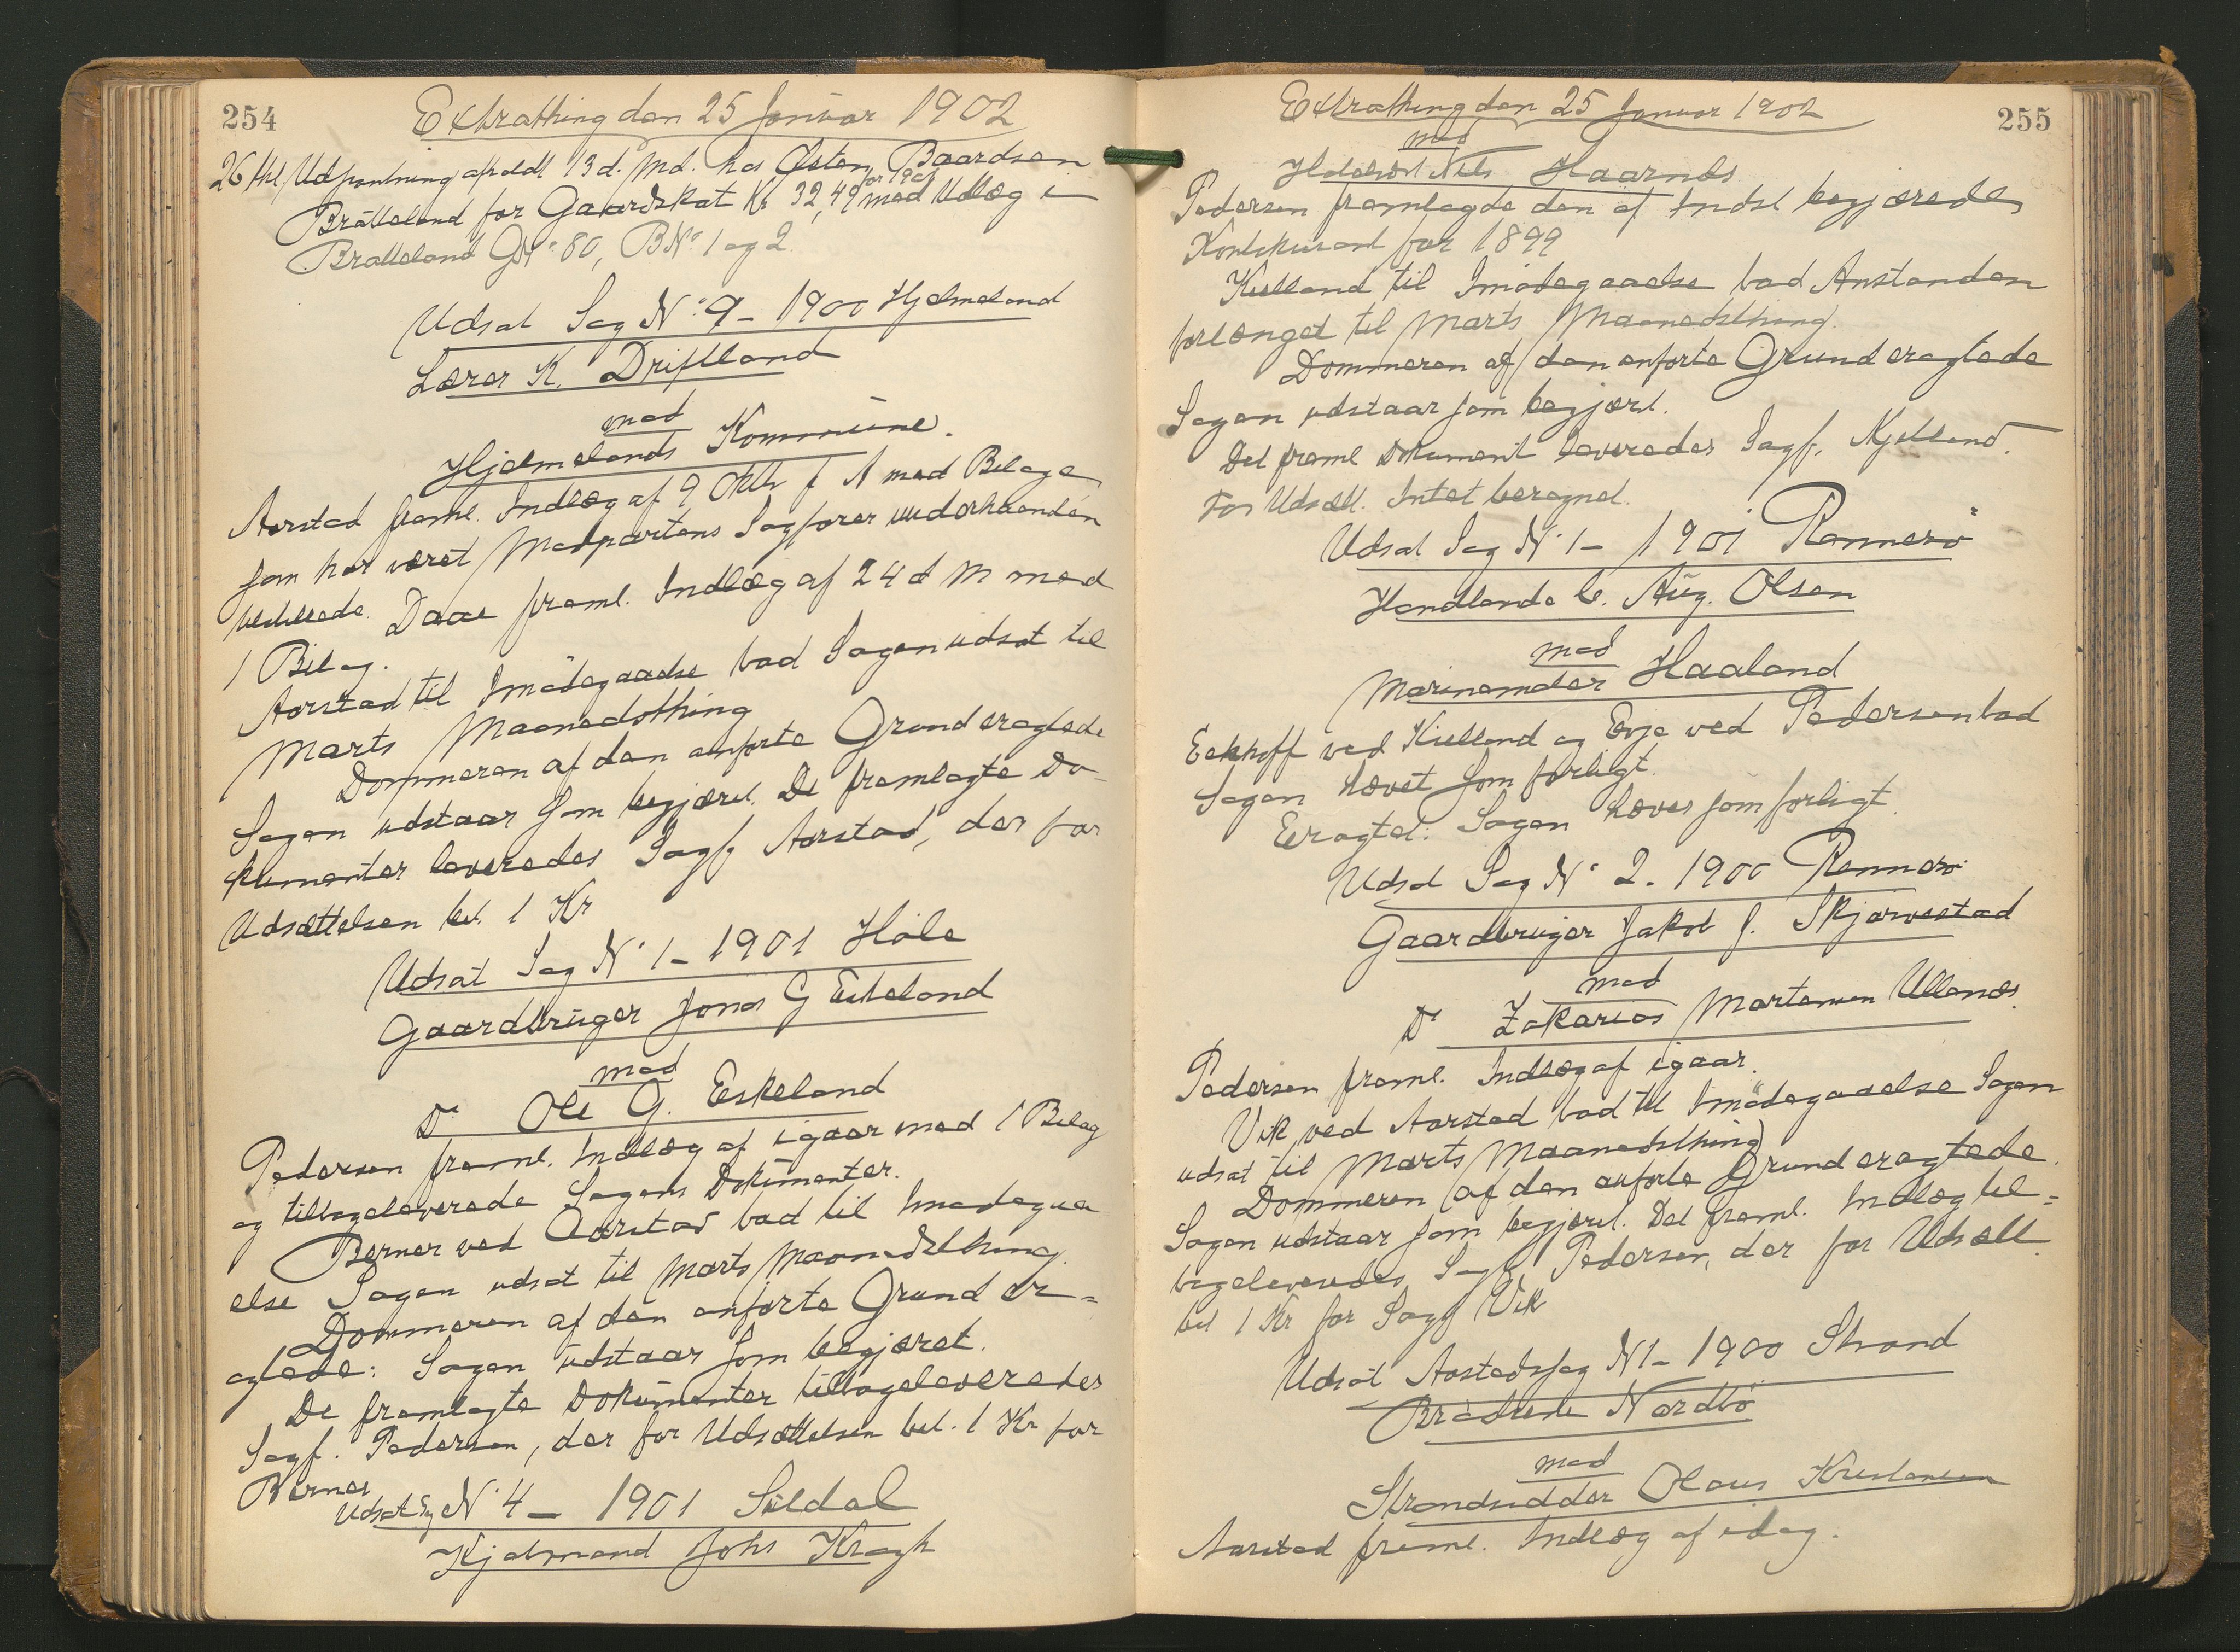 254
Extrathing den 25 Januar 1902
26 thl, Udpantning afholdt 13 d. Md. hos Østen Baardsen
for 1901
Bratteland for Gaardskat Kr 32,49 med Udlæg i
Bratteland GNo 80, BNo 1 og 2.
Udsat Sag No 9 - 1900 Hjelmeland
Lærer K. Driftland
mod
Hjelmelands Kommune.
Aarstad freml. Indlæg af 9 Oktb f A med Bilage
som har været Modpartens Sagfører underhaanden
tilstillede. Daae freml. Indlæg af 24 d M med
1 Bilag.
Aarstad til Imødegaaelse bad Sagen udsat til
Marts Maanedsthing
Dommeren af den anførte Grund eragtede
Sagen udstaar som begjært. De fremlagte Do-
kumenter leveredes Sagf Aarstad, der for
Udsættelsen bet. 1 Kr
Udsat Sag No 1 - 1901 Høle
Gaardbruger Jonas G Eskeland
mod
Do Ole G. Eskeland
Pedersen freml. Indlæg af igaar med 1 Bilag
og tilbageleverede Sagens Dokumenter.
Berner ved Aarstad bad til Imødegaa
else Sagen udsat til Marts Maanedsthing.
Dommeren af den anførte Grund er=
agtede: Sagen udstaar som begjæret.
De fremlagte Dokumenter tilbageleveredes
Sagf. Pedersen, der for Udsættelsen bet. 1 Kr for
Berner
Udsat Sag No 4 - 1901 Suldal
Kjøbmand Johs Kragh
255
Extrathing den 25 Januar 1902
mod
Nils Haarnæs
Pedersen fremlagde den af Indst begjærede
Kontokurant for 1899
Kielland til Imødegaaelse bad Anstanden
forlænget til Marts Maanedsthing.
Dommeren af den anførte Grund eragtede
Sagen udstaar som begjært.
Det freml Dokument leveredes Sagf. Kjelland.
For Udsætt. Intet beregnet.
Udsat Sag No 1 - 1901 Rennesø
Handlende C. Aug. Olsen
mod
Haaland
Eckhoff ved Kielland og Evje ved Pedersen bad
Sagen hævet som forligt.
Eragtet: Sagen hæves som forligt.
Udsat Sag No 2. 1900 Rennesø
Gaardbruger Jakob J. Skjørvestad
mod
Do Zakarias Martensen Ullenæs.
Pedersen freml. Indlæg af igaar.
Vik, ved Aarstad bad til Imødegaaelse Sagen
udsat til Marts Maanedsthing
Dommeren af den anførte Grund eragtede.
Sagen udstaar som begjært. Det freml. Indlæg til=
bageleveredes Sagf Pedersen, der for Udsætt.
bet 1 Kr for Sagf Vik
Udsat Aastedssag N 1 - 1900 Strand
Brødrene Nordbø
mod
Strandsidder Olaus Kristensen
Aarstad freml. Indlæg af idag.